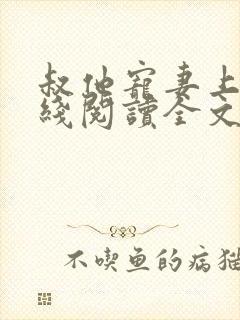 叔他寵妻上
綫閱讀全文
不喫鱼的病猫